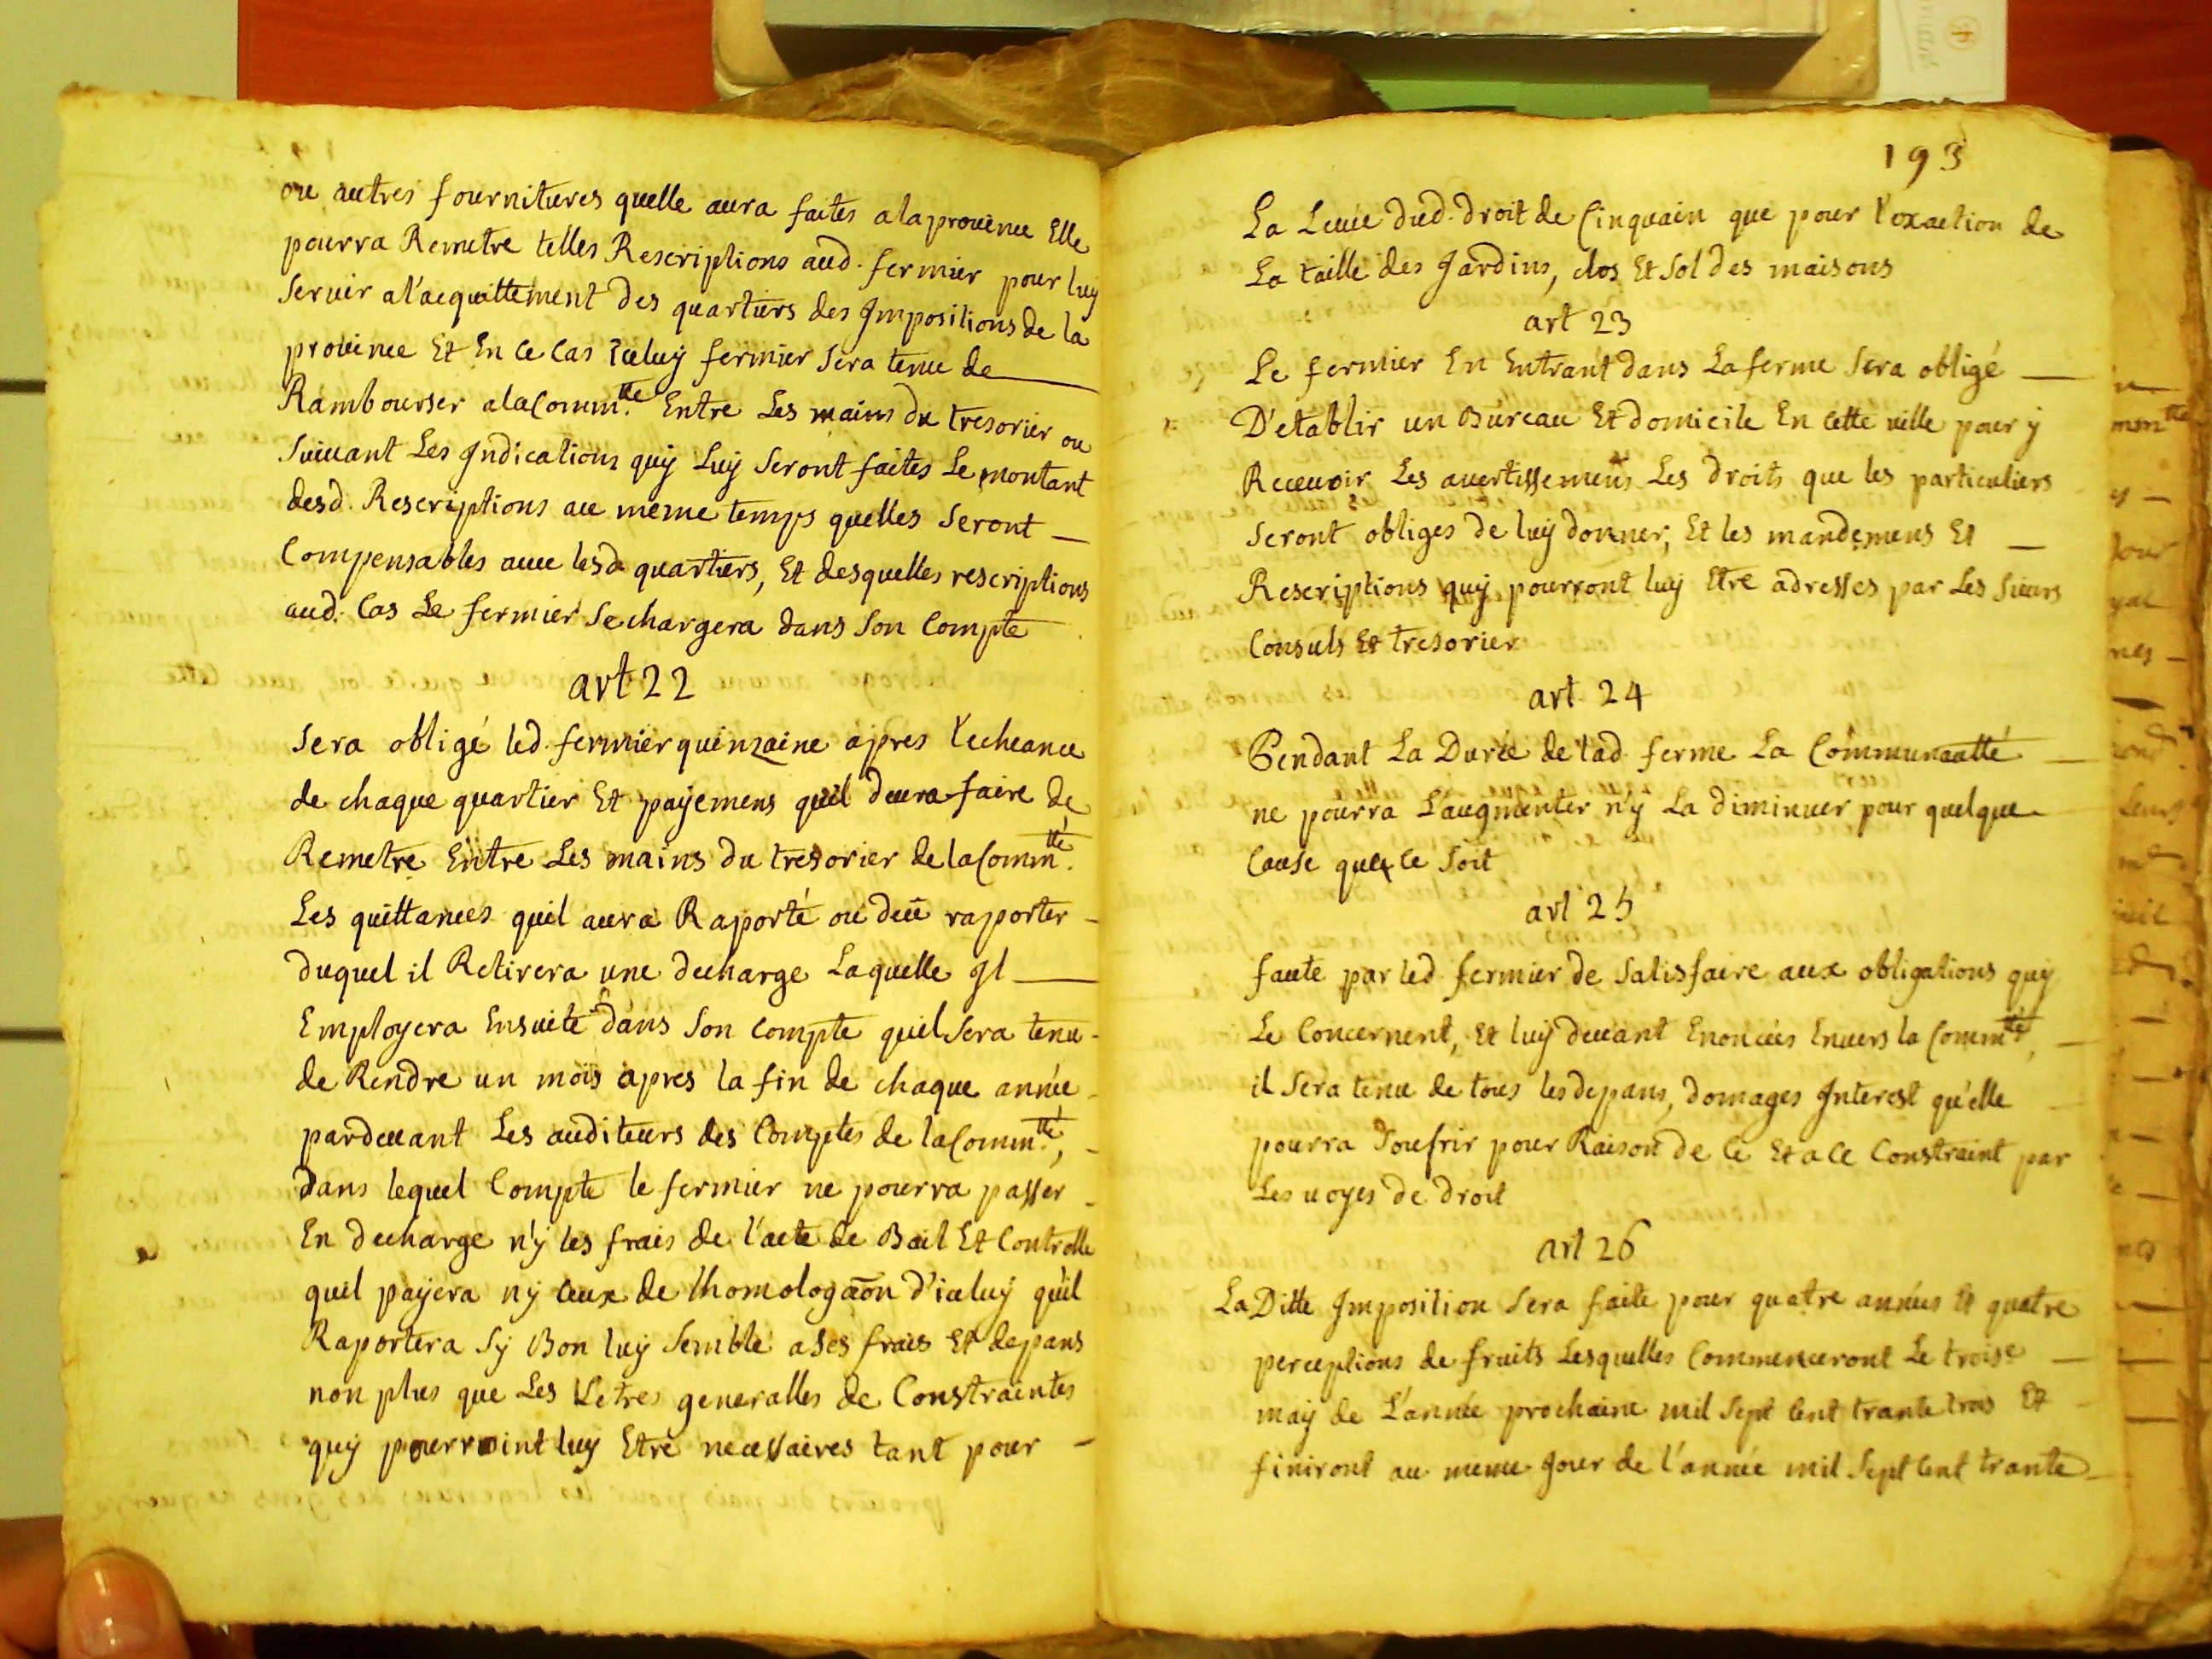 ou autres fournitures quelle aura faites a la province Elle
pourra Remetre telles Rescriptions aud. fermier pour luy
servir a l'acquittement des quartiers des Impositions de la
province Et En ce Cas Iceluy fermier sera tenu de
Rambourser a la Comm.té Entre Les mains du tresorier ou
suivant Les Indications quy Luy seront faites Le montant
desd. Rescriptions au meme temps quelles seront
Compensables avec lesd. quartiers, Et desquelles rescriptions
aud. Cas Le fermier se chargera dans son Compte
art 22
sera obligé led. fermier quinzaine apres l'echeance
de chaque quartier Et payemens quil devra faire de
Remetre Entre Les mains du tresorier de la Comm.té
Les quittances quil aura Raporté ou deü raporter
duquel il Retirera une decharge Laquelle Il
Employera Ensuite dans son Compte quil sera tenu
de Rendre un mois apres la fin de chaque année
pardevant Les auditeurs des Comptes de la Comm.té,
dans lequel Compte le fermier ne pourra passer
En decharge n'y les frais de l'acte de Bail Et Controlle
quil payera n'y ceux de lhomologãon d'iceluy qu'il
Raportera sy Bon luy semble a ses frais Et depans
non plus que Les Letres generalles de Constraintes
quy pourroint luy Etre necessaires tant pour
193
La Levée dud. droit de Cinquain que pour l'exaction de
La taille des Jardins, clos Et sol des maisons
art 23
Le fermier En Entrant dans La ferme sera obligé
D'etablir un Bureau Et domicile En cette ville pour y
Recevoir Les avertissemens Les droits que les particuliers
seront obliges de luy donner, Et les mandemens Et
Rescriptions quy pourront luy Etre adresses par Les sieurs
Consuls Et tresorier
art 24
Pendant La Durée de lad. ferme La Communautté
ne pourra L'augmenter n'y La diminuer pour quelque
Cause que ce soit
art 25
faute par led. fermier de satisfaire aux obligations quy
Le Concernent, Et luy devant Enoncées Envers la Comm.té,
il sera tenu de tous les depans, domages Interest qu'elle
pourra soufrir pour Raison de ce Et a ce Constraint par
Les voyes de droit
art 26
La Ditte Imposition sera faite pour quatre années Et quatre
perceptions de fruits Lesquelles Commenceront Le troise
may de L'année prochaine mil sept cent trante trois Et
finiront au meme Jour de l'année mil sept cent trante